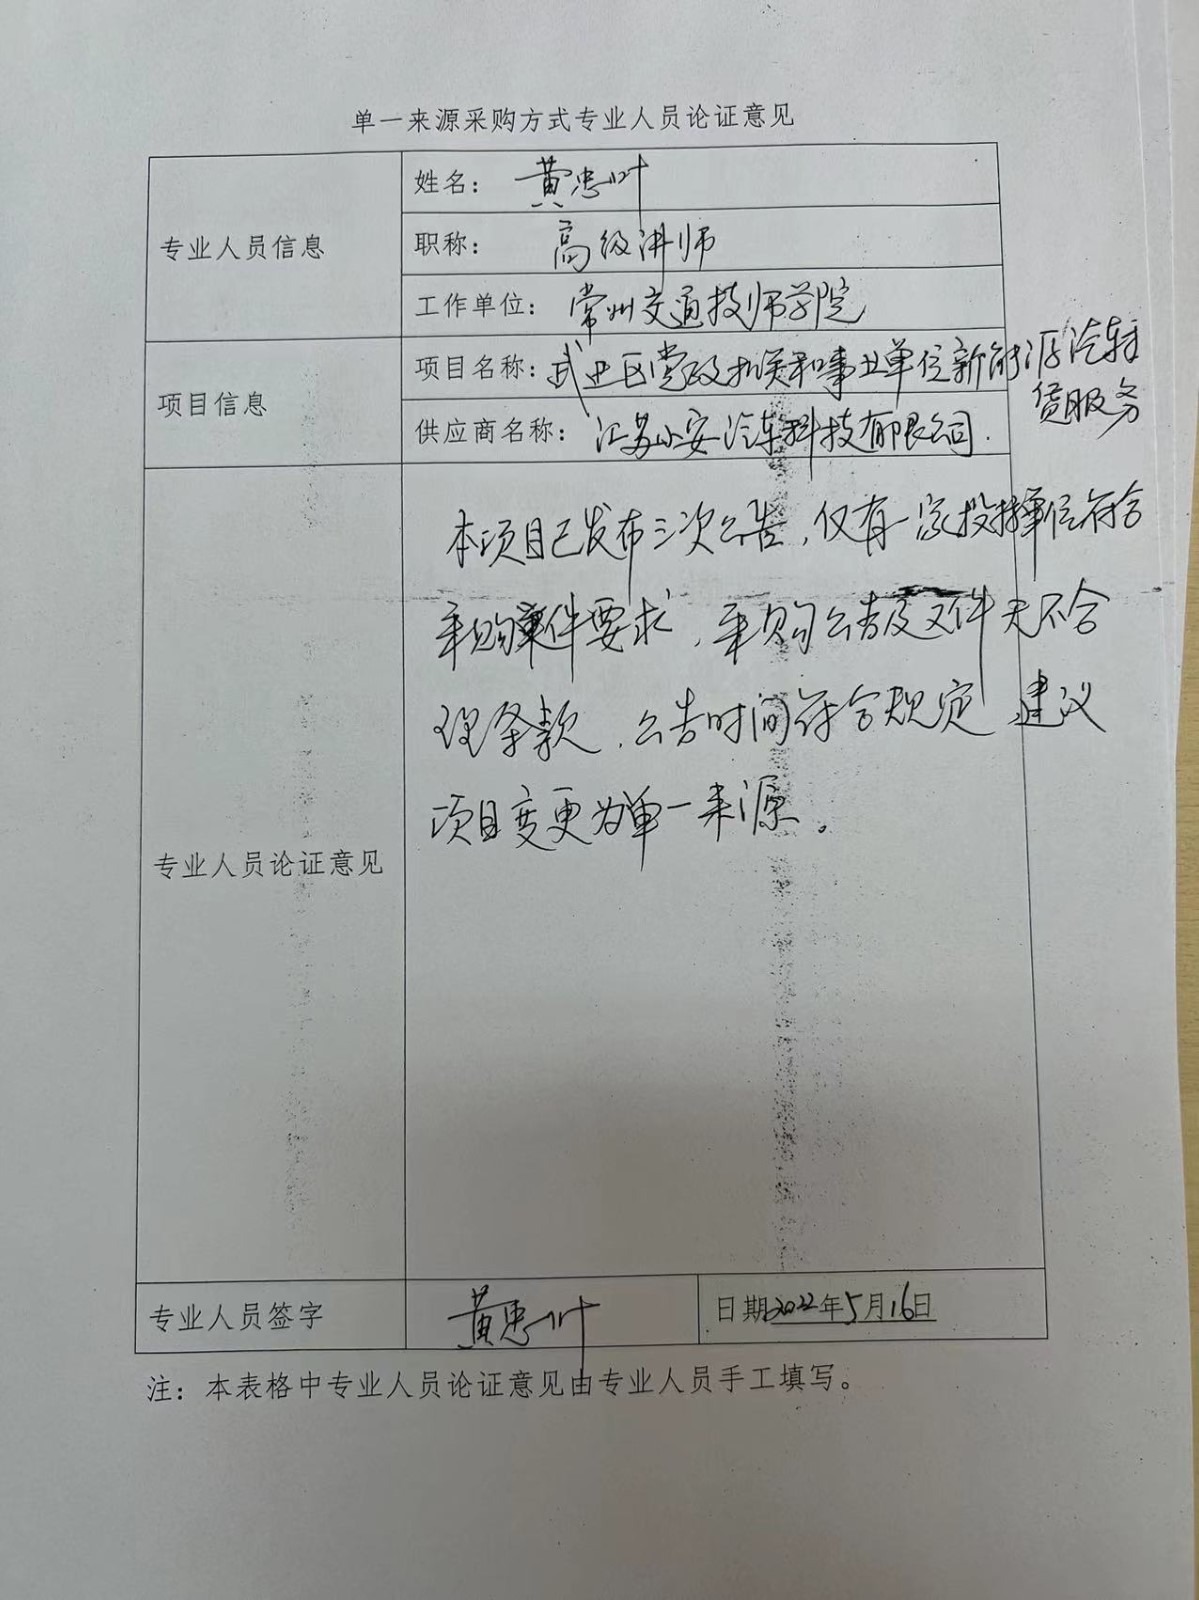 单一来源采购方式专业人员论证意见
专业人员信息
姓名： 黄忠叶
职称： 高级讲师
工作单位： 常州交通技师学院
项目信息
项目名称：武进区党政机关和事业单位新能源汽车租
赁服务
供应商名称： 江苏小安汽车科技有限公司.
专业人员论证意见
本项目已发布三次公告，仅有一家投标单位符合
采购文件要求，采购公告及文件无不合
理条款，公告时间符合规定 建议
项目变更为单一来源。
专业人员签字
黄忠叶
日期2022年5月16日
注：本表格中专业人员论证意见由专业人员手工填写。